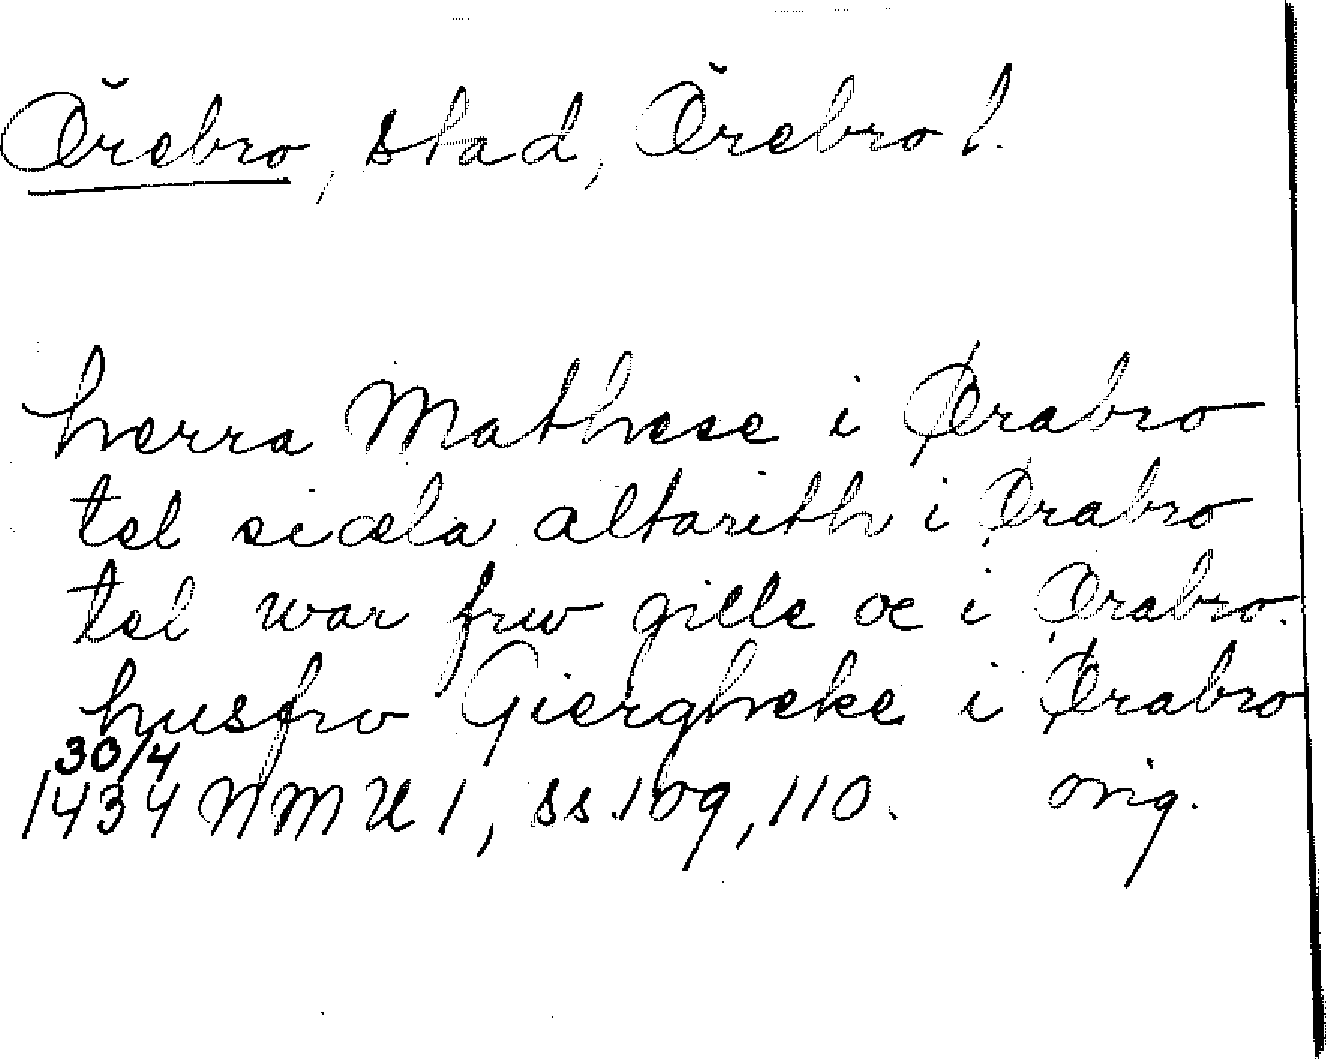 Örebro, stad, Örebro l.
herra Mathese i Ørabro
tel siæla altarith i Ørabro
tel war frw gille oc i Örabro.
husfrv Giergheke i Ørabro
30/4
1434 NMU 1, ss. 109, 110. orig.